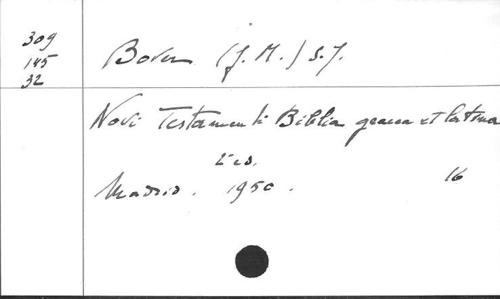 309
145
32
Bover (J. M.) S. J.
Novi Testamenti Biblia graeca et latina
2 ed.
Madrid. 1950.
16